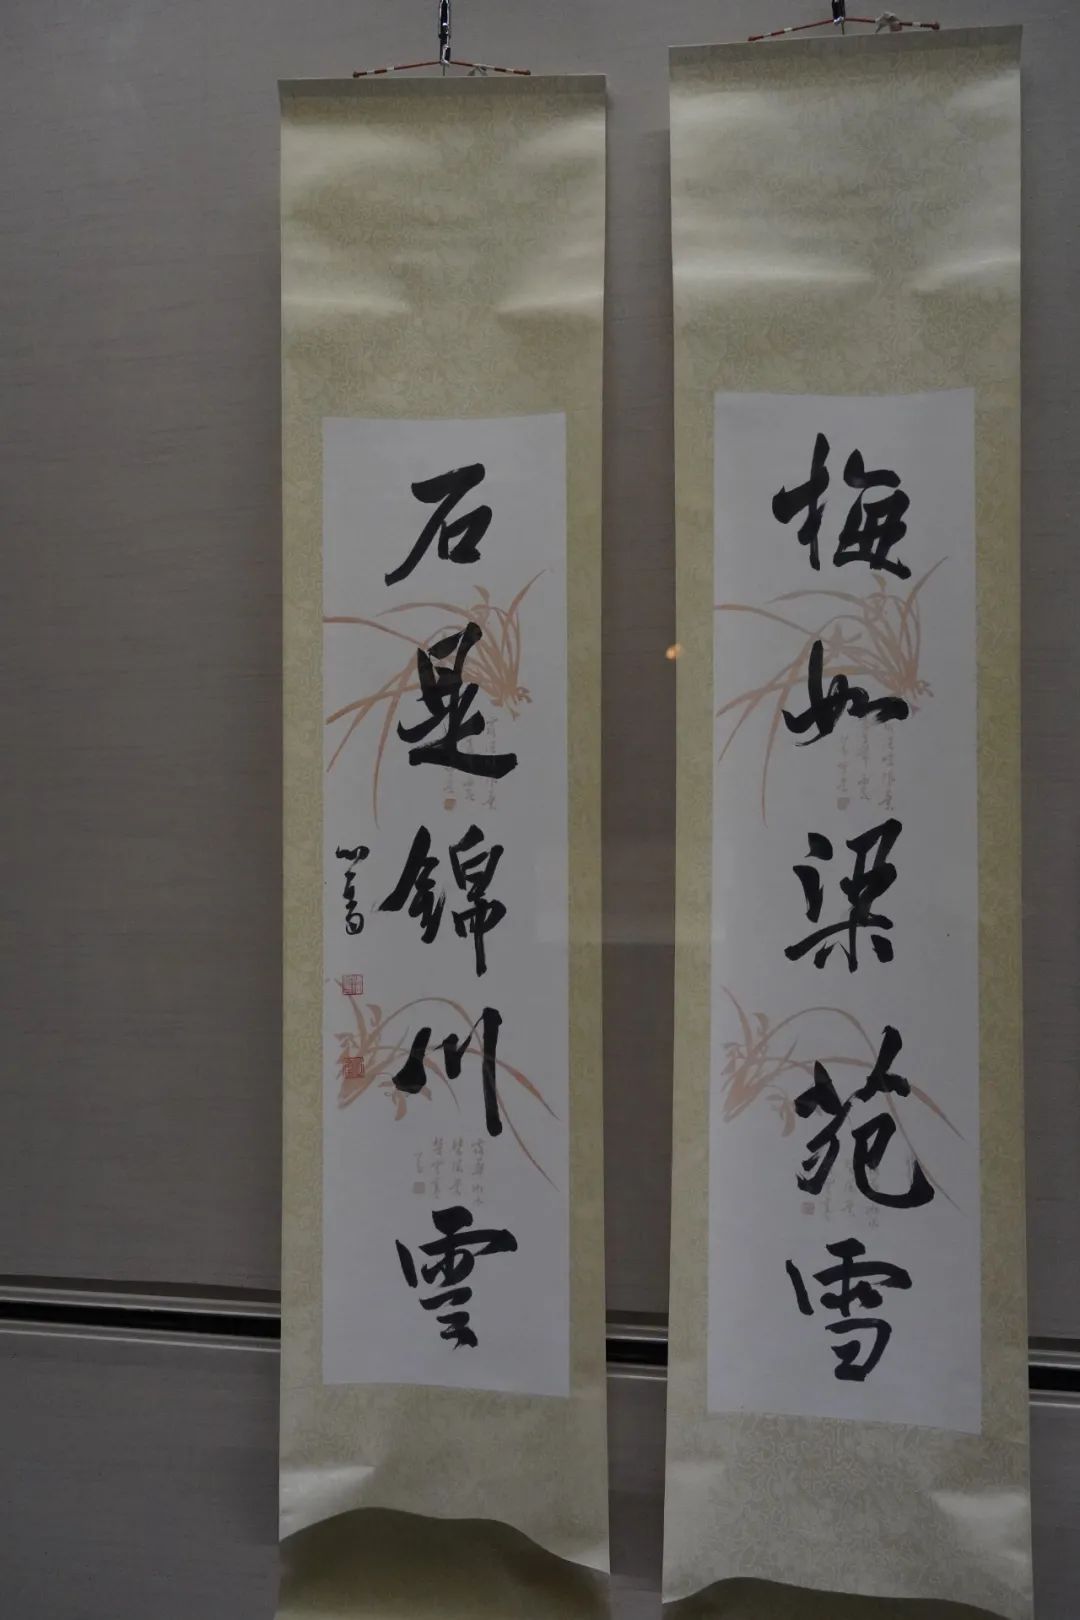 梅如梁苑雪
石是錦川雲
心畬